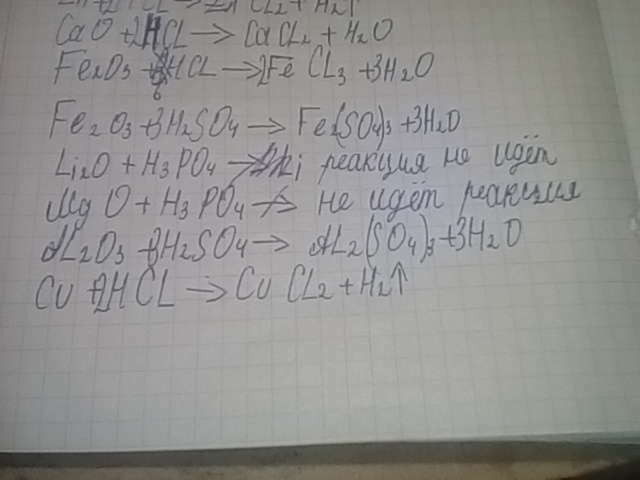 CL2 + H2↑
CaO + 2HCL → CaCL2 + H2O
Fe2O3 + 6HCL → 2FeCL3 + 3H2O
Fe2O3 + 3H2SO4 → Fe2(SO4)3 + 3H2O
Li2O + H3PO4 → реакция не идёт
MgO + H3PO4 → не идёт реакция
AL2O3 + 3H2SO4 → AL2(SO4)3 + 3H2O
Cu + 2HCL → CuCL2 + H2↑